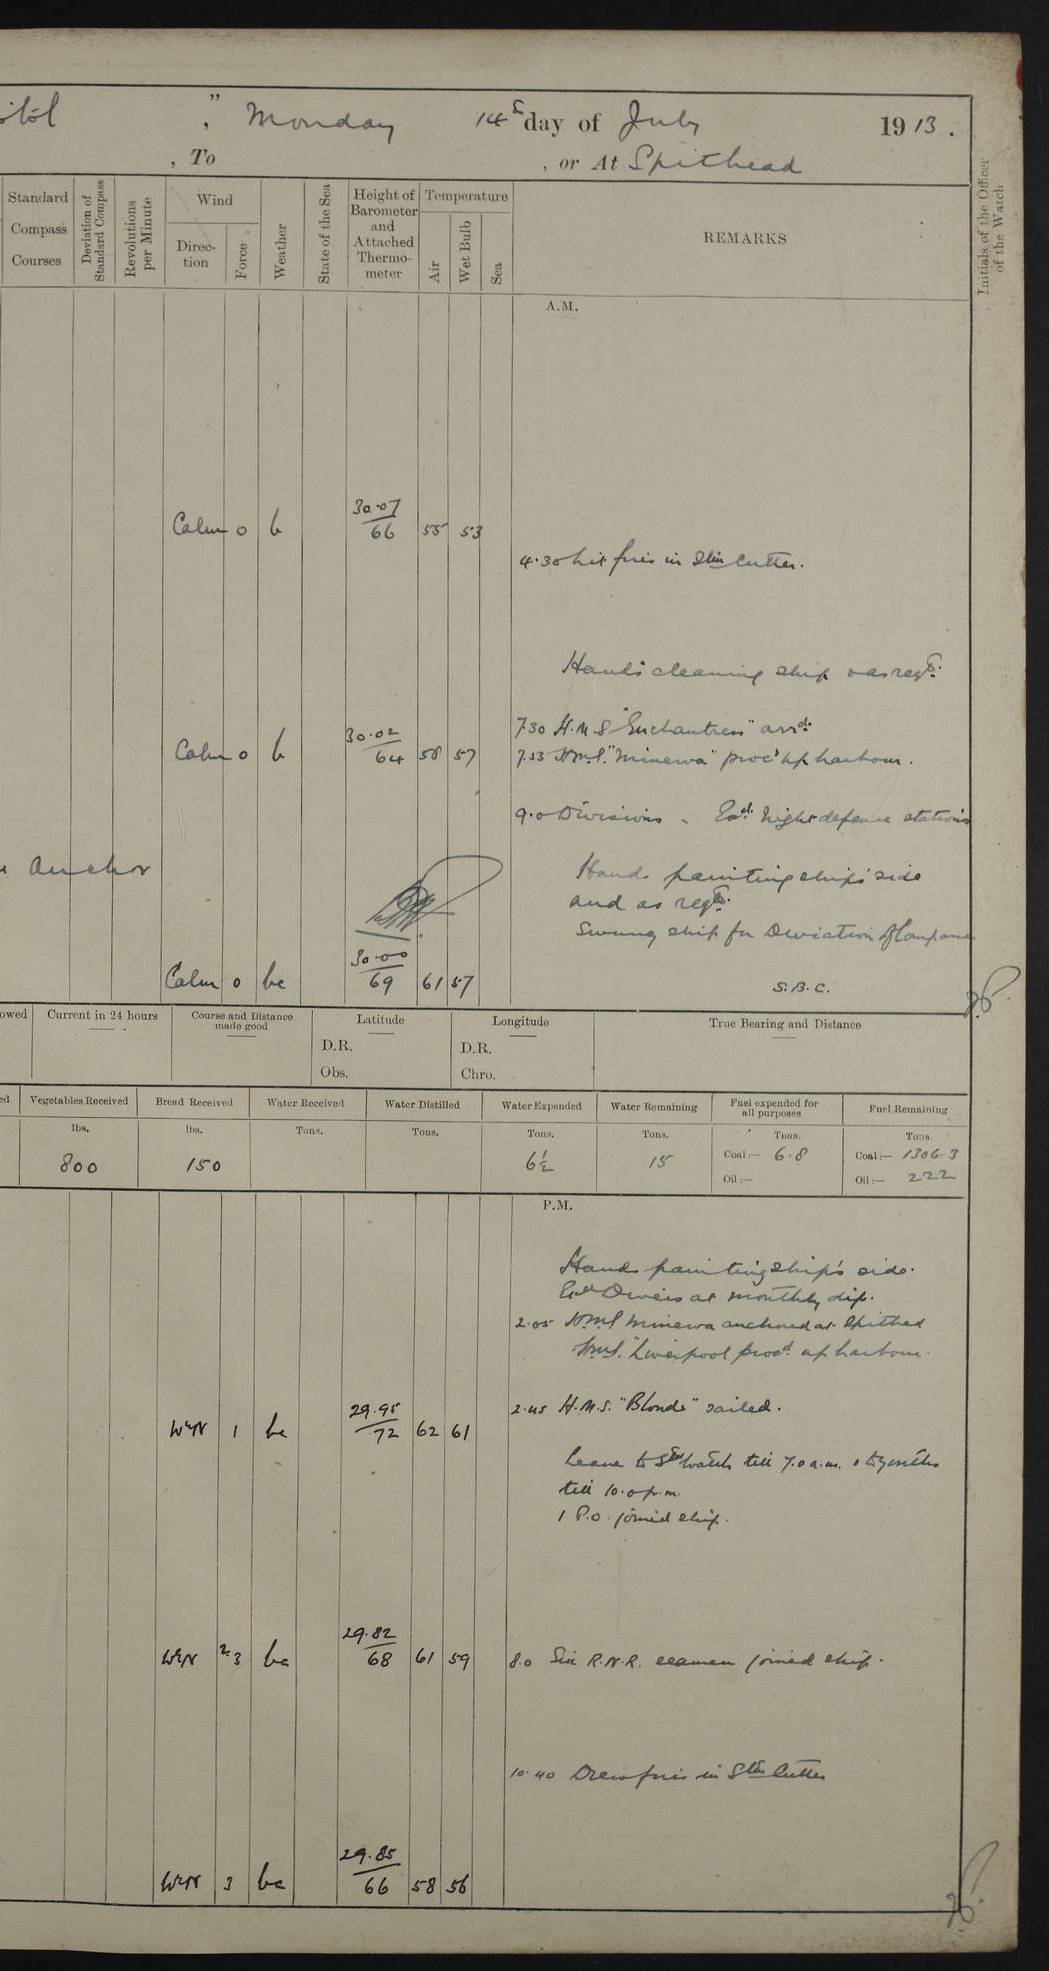 " Monday 14th day of July 1913.
, To , or At Spithead
Standard Compass Courses
Deviation of Standard Compass
Revolutions per Minute
Wind
Direction
Force
Weather
State of the Sea
Height of Barometer and Attached Thermometer
Temperature
Air
Wet Bulb
Sea
REMARKS
Initials of the Officer of the Watch
A.M.
Calm 0 b 30.07 66 55 53
4.30 Lit fires in Stm Cutter.
Hands cleaning ship & as reqd.
7.30 H.M.S "Enchantress" arrd.
Calm 0 b 30.02 64 58 57
7.53 H.M.S. "Minerva" procd up harbour.
9.0 Divisions - Exd. night defence stations
Anchor
Hands painting ship's side
and as reqd.
Swung ship for Deviation of Compasses
Calm 0 bc 30.00 69 61 57
S.B.C.
owed
Current in 24 hours
Course and Distance made good
Latitude
D.R.
Obs.
Longitude
D.R.
Chro.
True Bearing and Distance
ed
Vegetables Received
Bread Received
Water Received
Water Distilled
Water Expended
Water Remaining
Fuel expended for all purposes
Fuel Remaining
lbs. lbs. Tons. Tons. Tons. Tons. Tons. Tons.
800 150 6½ 15 Coal:— 6.8 Coal:— 1306.3
Oil:— Oil:— 222
P.M.
Hands painting ship's side.
Exd Divers at monthly dip.
2.05 H.M.S Minerva anchored at Spithead
H.M.S. "Liverpool procd. up harbour.
2.45 H.M.S. "Blonde" sailed.
WxN 1 bc 29.95 72 62 61
Leave to Stbd watch till 7.0 a.m. & to youths
till 10.0 p.m.
1 P.O. joined ship.
WxN 2.3 bc 29.82 68 61 59
8.0 Six R.N.R. seamen joined ship.
10.40 Drew fires in Stm Cutter
WxN 3 bc 29.85 66 58 56